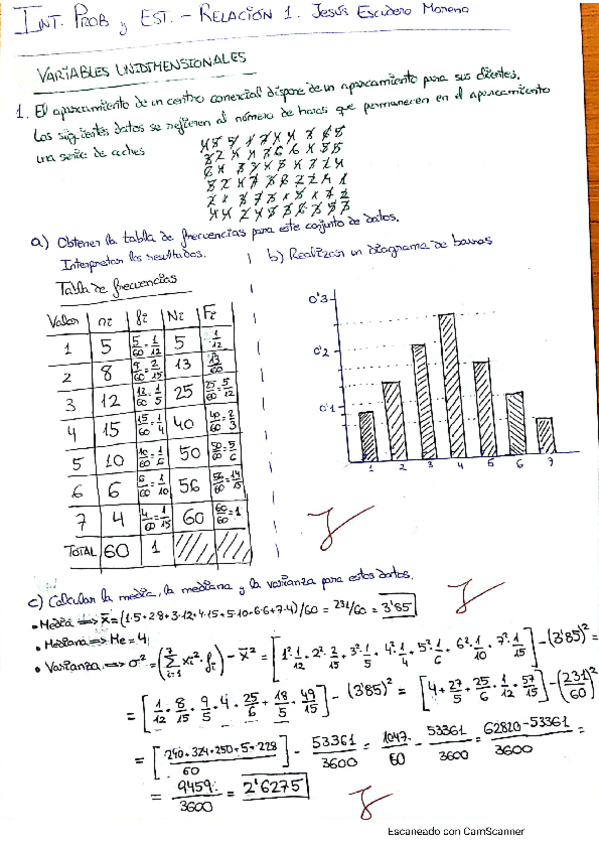 INT. PROB y EST. - RELACIÓN 1. Jesús Escudero Moreno
VARIABLES UNIDIMENSIONALES
1. El aparcamiento de un centro comercial dispone de un aparcamiento para sus clientes.
Los siguientes datos se refieren al número de horas que permanecen en el aparcamiento
una serie de coches
a) Obtener la tabla de frecuencias para este conjunto de datos.
Interpretar los resultados.
b) Realizar un diagrama de barras
Tabla de frecuencias
Valor ni fi Ni Fi
1 5 5/60=1/12 5 1/12
2 8 8/60=2/15 13 13/60
3 12 12/60=1/5 25 25/60=5/12
4 15 15/60=1/4 40 40/60=2/3
5 10 10/60=1/6 50 50/60=5/6
6 6 6/60=1/10 56 56/60=14/15
7 4 4/60=1/15 60 60/60=1
TOTAL 60 1
0'3
0'2
0'1
1 2 3 4 5 6 7
c) Calcular la media, la mediana y la varianza para estos datos.
• Media => x̄ = (1·5+2·8+3·12+4·15+5·10+6·6+7·4)/60 = 231/60 = 3'85
• Mediana => Me = 4
• Varianza => σ² = (∑ᵢ₌₁⁷ xi²·fi) - x̄² = [1²·1/12+2²·2/15+3²·1/5+4²·1/4+5²·1/6+6²·1/10+7²·1/15] - (3'85)² =
= [1/12+8/15+9/5+4+25/6+18/5+49/15] - (3'85)² = [4+27/5+25/6+1/12+57/15] - (231/60)²
= [240+324+250+5+228/60] - 53361/3600 = 1047/60 - 53361/3600 = 62820-53361/3600 =
= 9459/3600 = 2'6275
Escaneado con CamScanner